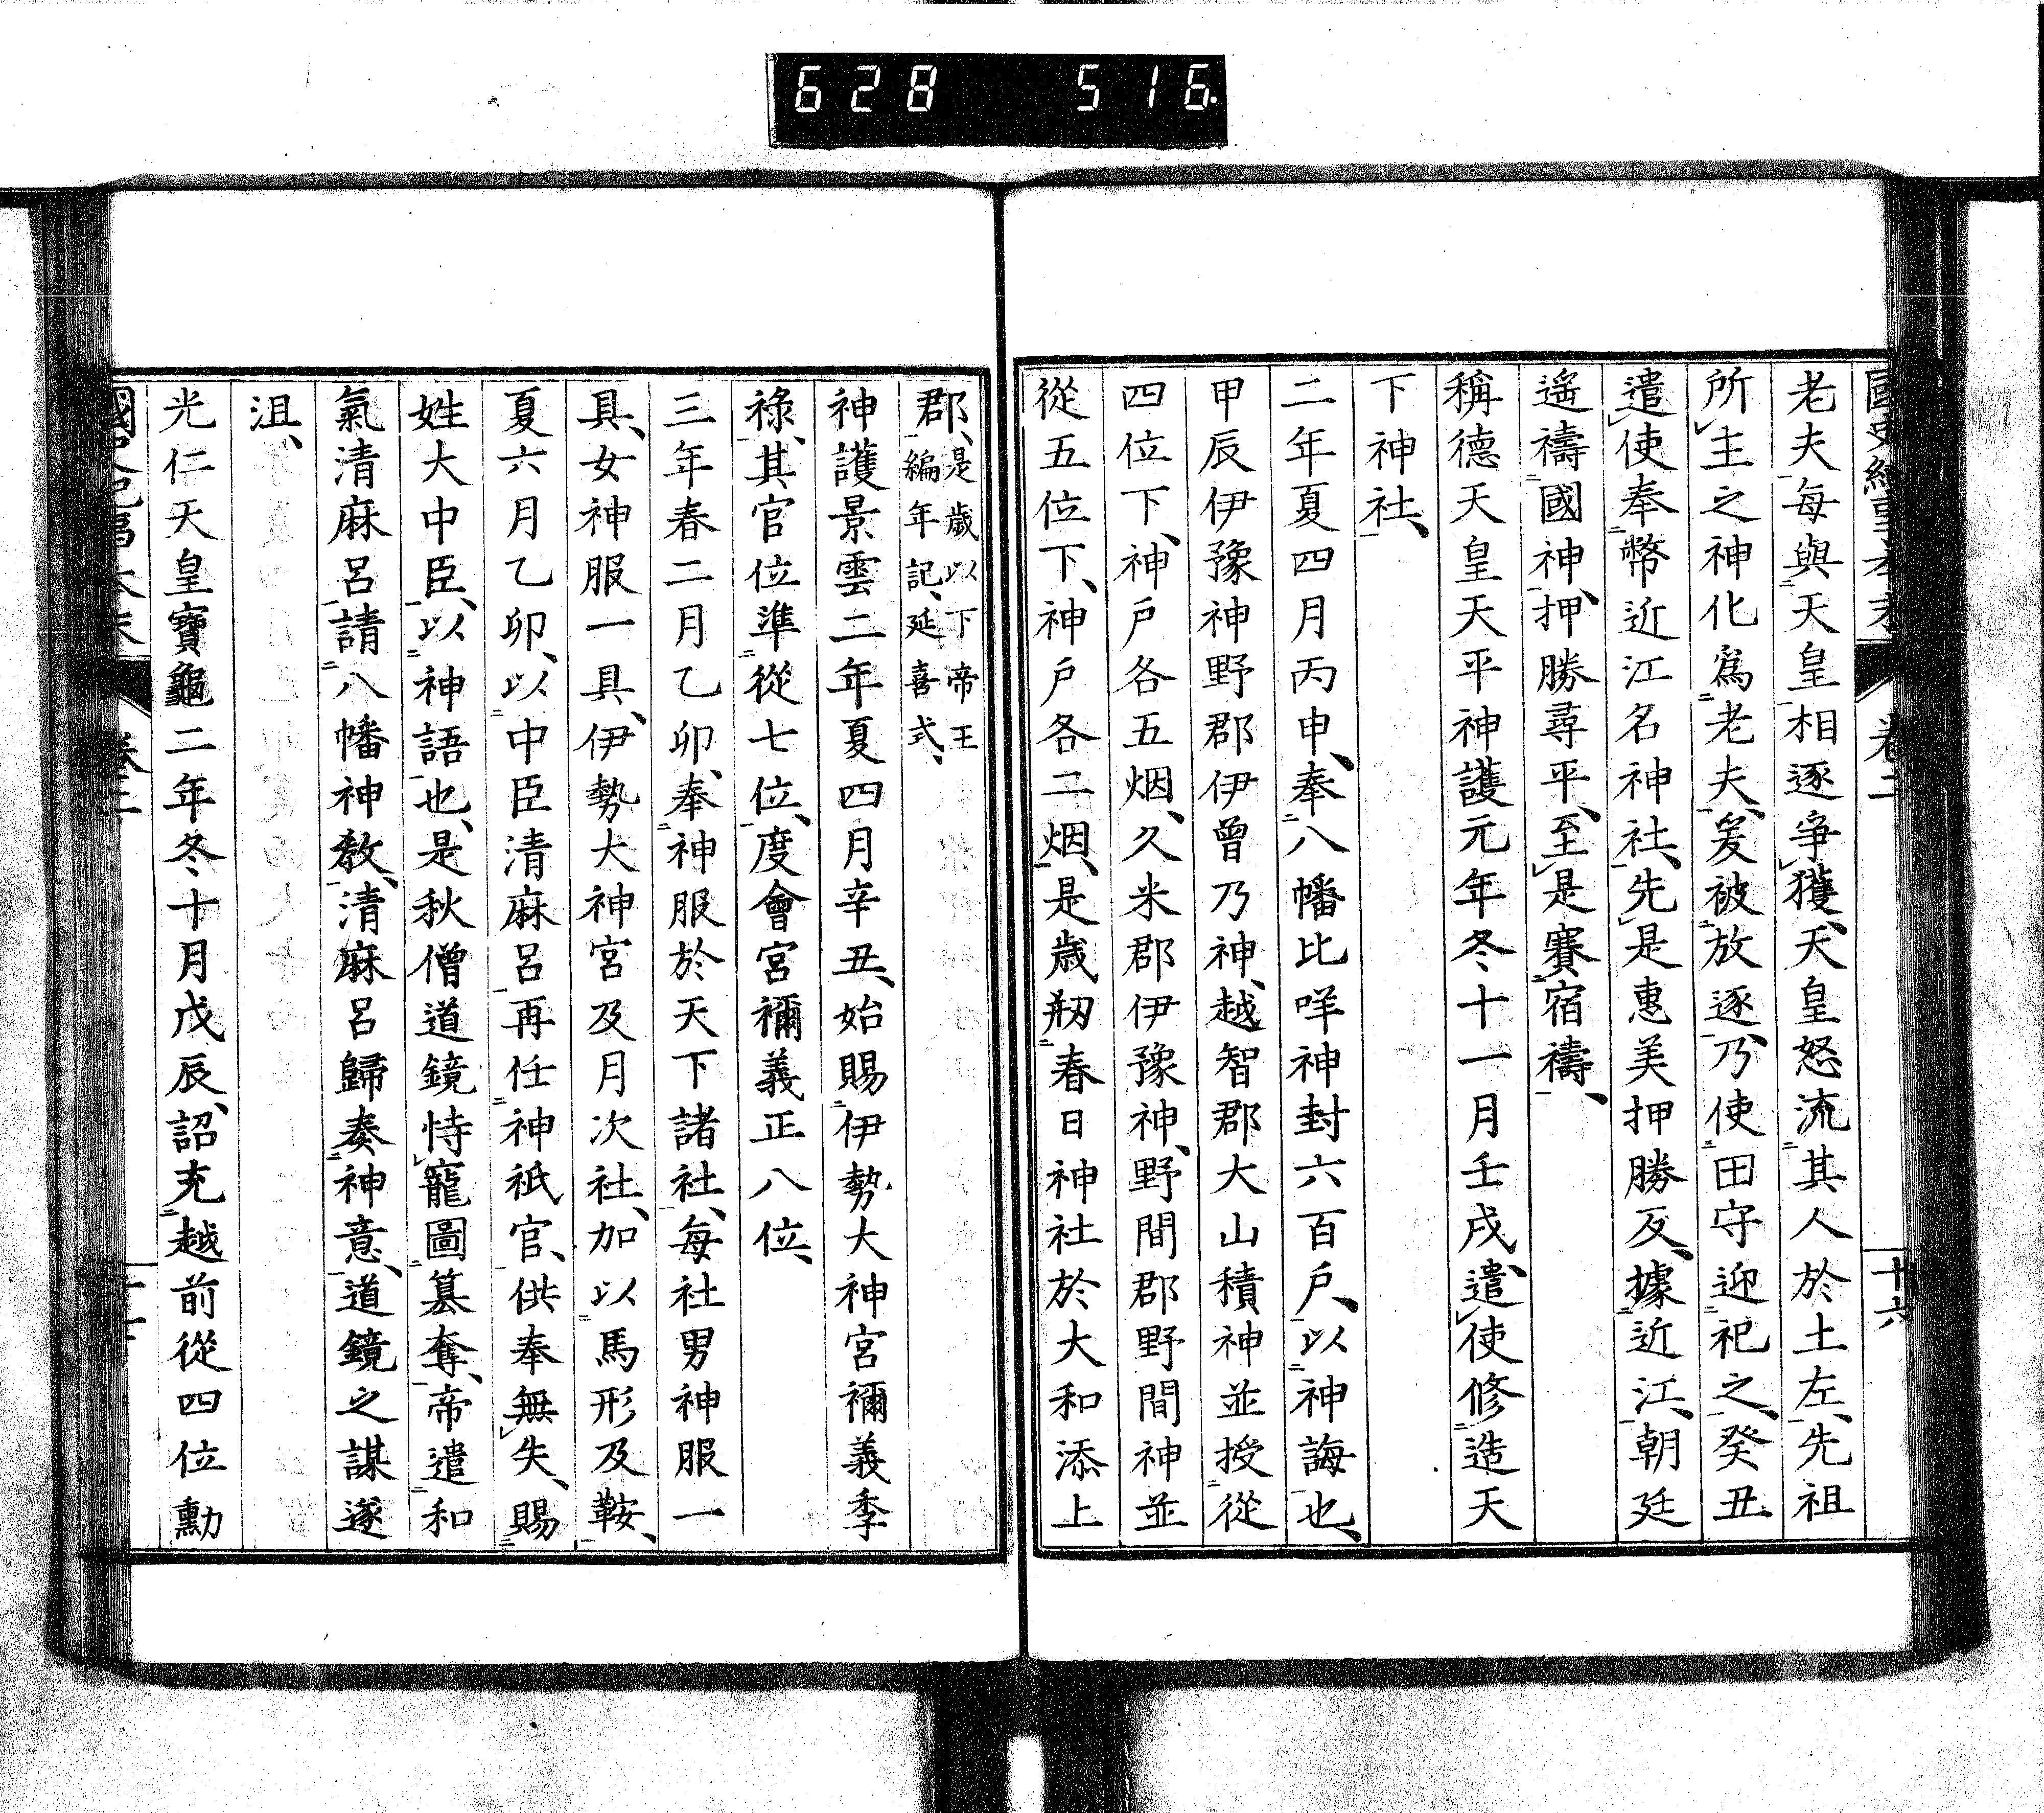 628 516
老夫每與天皇相逐爭獲、天皇怒流其人於土左、先祖
所主之神化爲老夫、爰被放逐、乃使田守迎祀之、癸丑
遣使奉幣近江名神社、先是惠美押勝反、據近江、朝廷
遙禱國神、押勝尋平、至是賽宿禱、
稱德天皇天平神護元年冬十一月壬戌、遣使修造天
下神社、
二年夏四月丙申、奉八幡比咩神封六百戶、以神誨也、
甲辰伊豫神野郡伊曾乃神、越智郡大山積神並授從
四位下、神戶各五烟、久米郡伊豫神、野間郡野間神並
從五位下、神戶各二烟、是歲剏春日神社於大和添上
郡、是歲以下帝王
編年記、延喜式、
神護景雲二年夏四月辛丑、始賜伊勢大神宮禰義季
祿、其官位準從七位、度會宮禰義正八位、
三年春二月乙卯、奉神服於天下諸社、每社男神服一
具、女神服一具、伊勢大神宮及月次社、加以馬形及鞍、
夏六月乙卯、以中臣清麻呂再任神祇官、供奉無失、賜
姓大中臣、以神語也、是秋僧道鏡恃寵圖簒奪、帝遣和
氣清麻呂請八幡神教、清麻呂歸奏神意、道鏡之謀遂
沮、
光仁天皇寶龜二年冬十月戊辰、詔充越前從四位勳